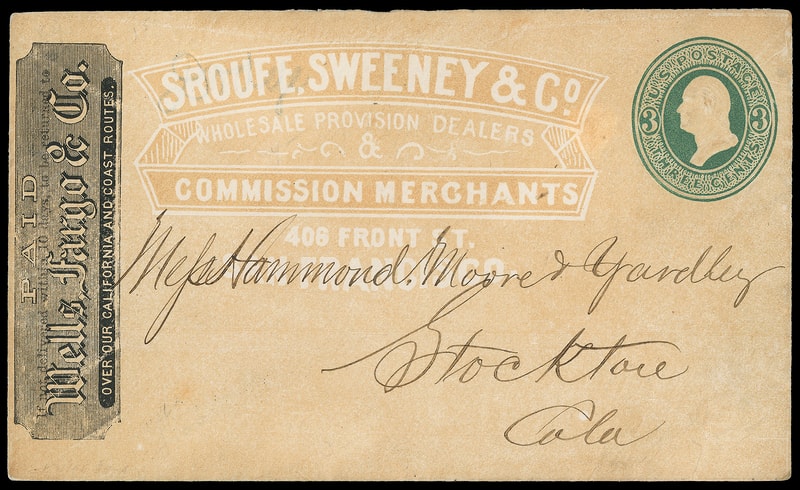 SROUFE, SWEENEY & Co
WHOLESALE PROVISION DEALERS
&
COMMISSION MERCHANTS
406 FRONT ST.
FRANCISCO
U.S. POSTAGE
3 3
THREE CENTS
PAID
Wells, Fargo & Co.
OVER OUR CALIFORNIA AND COAST ROUTES.
If not delivered within 10 days, to be returned to
Mess Hammond, Moore & Yardley
Stockton
Cala